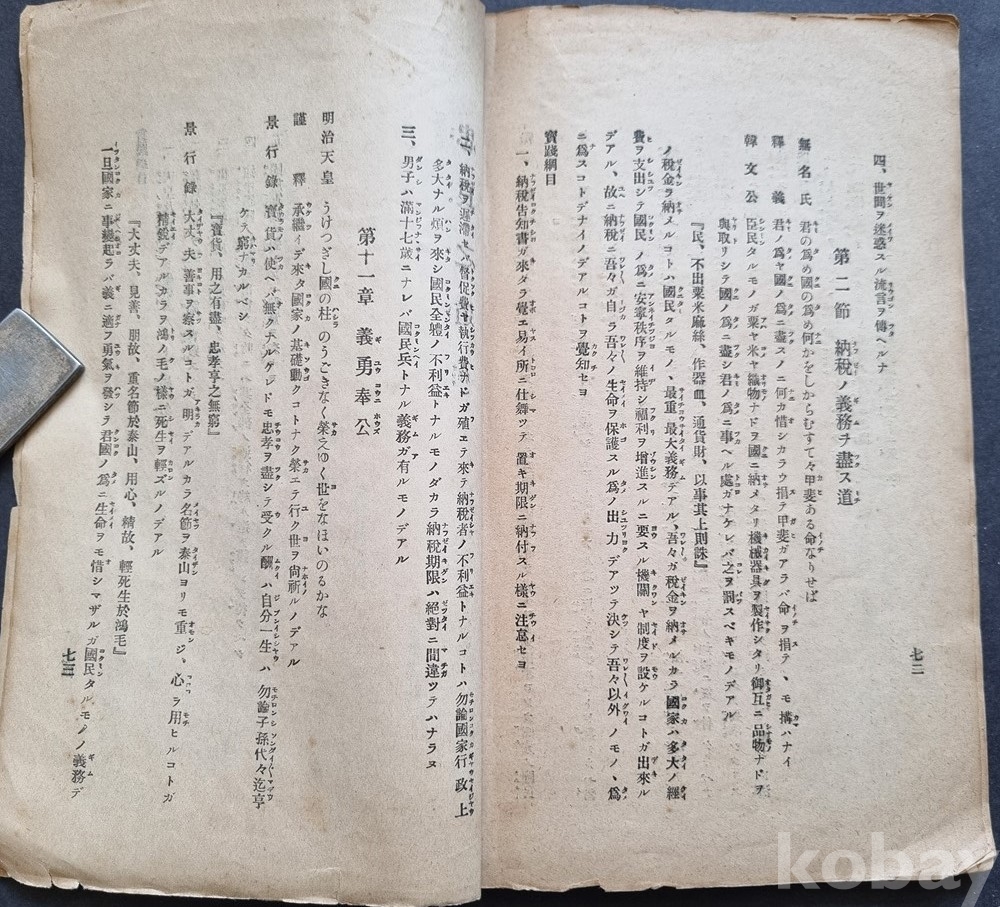 四、世間ヲ迷惑スル流言ヲ傳ヘルナ
第二節 納稅ノ義務ヲ盡ス道
無名氏 君の爲め國の爲め何かをしからむすて々甲斐ある命なりせば
釋義 君ノ爲ヤ國ノ爲ニ盡スノニ何カ惜シカラウ捐テ甲斐ガアラバ命ヲ捐テヽモ搆ハナイ
韓文公 臣民タルモノガ粟ヤ米ヤ織物ナドヲ國ニ納メタリ機械器具ヲ製作シタリ御互ニ品物ナドヲ
與取リシラ國ノ爲ニ盡シ君ノ爲ニ事ヘル處ガナケレバ之ヲ罰スベキモノデアル
『民、不出粟米麻絲、作器皿、通貨財、以事其上則誅』
ノ稅金ラ納メルコトハ國民タルモノヽ最重最大義務デアル、吾々ガ稅金ヲ納メルカラ國家ハ多大ノ經
費ヲ支出シテ國民ノ爲ニ安寧秩序ヲ維持シ福利ヲ增進スルニ要スル機關ヤ制度ヲ設ケルコトガ出來ル
デアル、故ニ納稅ハ吾々ガ自ラ吾々ノ生命ヲ保護スル爲ノ出力デアツテ決シテ吾々以外ノモノヽ爲
ニ爲スコトデナイノデアルコトヲ覺知セヨ
實踐綱目
一、納稅告知書ガ來タラ覺エ易イ所ニ仕舞ツテ置キ期限ニ納付スル樣ニ注意セヨ
七二
二、納稅ヲ遲滯セバ督促費ヤ執行費ナドガ殖エテ來テ納稅者ノ不利益トナルコトハ勿論國家行政上
多大ナル煩ヲ來シ國民全體ノ不利益トナルモノダカラ納稅期限ハ絕對ニ間違ツテハナラヌ
三、男子ハ滿十七歲ニナレバ國民兵トナル義務ガ有ルモノデアル
第十一章 義勇奉公
明治天皇 うけつぎし國の柱のうごきなく榮えゆく世をなほいのるかな
謹釋 承繼イデ來タ國家ノ基礎動クコトナク榮エテ行ク世ヲ尙祈ルノデアル
景行錄 寶貨ハ使ヘバ無クナルケレドモ忠孝ヲ盡シテ受クル酬ハ自分一生ハ勿論子孫代々迄亨
ケテ窮ナカルベシ
『寶貨、用之有盡、忠孝亨之無窮』
景行錄 大丈夫善事ヲ察スルコトガ明デアルカラ名節ヲ泰山ヨリモ重ジヽ心ラ用ヒルコトガ
精銳デアルカラヲ鴻ノ毛ノ樣ニ死生ヲ輕ズルノデアル
『大丈夫、見善、朋故、重名節於泰山、用心、精故、輕死生於鴻毛』
一旦國家ニ事變起ラバ義ニ適フ勇氣ヲ發シラ君國ノ爲ニ生命ヲモ惜シマザルガ國民タルモノノ義務デ
七三
kobay